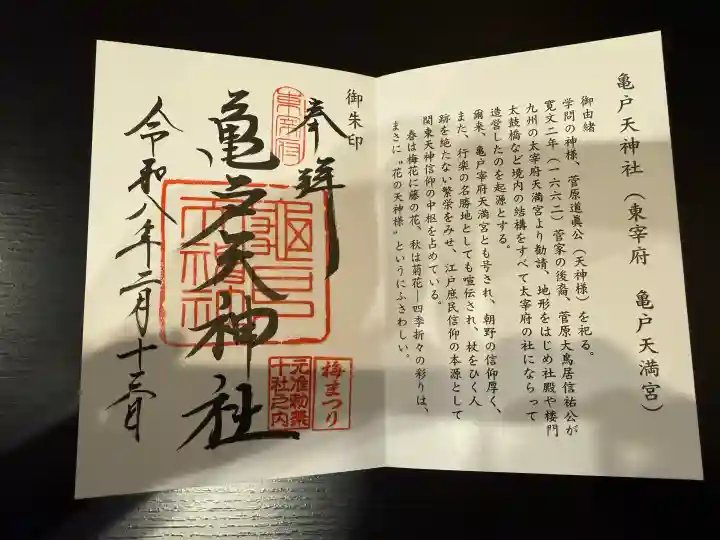 亀戸天神社（東宰府 亀戸天満宮）
御由緒
学問の神様、菅原道眞公（天神様）を祀る。
寛文二年（一六六二）菅家の後裔、菅原大鳥居信祐公が
九州の太宰府天満宮より勧請、地形をはじめ社殿や楼門
太鼓橋など境内の結構をすべて太宰府の社にならって
造営したのを起源とする。
爾来、亀戸宰府天満宮とも号され、朝野の信仰厚く、
また、行楽の名勝地としても喧伝され、杖をひく人
跡を絶たない繁栄をみせ、江戸庶民信仰の本源として
関東天神信仰の中枢を占めている。
春は梅花に藤の花、秋は菊花―四季折々の彩りは、
まさに〝花の天神様〟というにふさわしい。
御朱印
奉拝
東宰府
亀戸天神社
亀戸
天神社
梅まつり
元准勅祭
十社之内
令和八年二月十三日